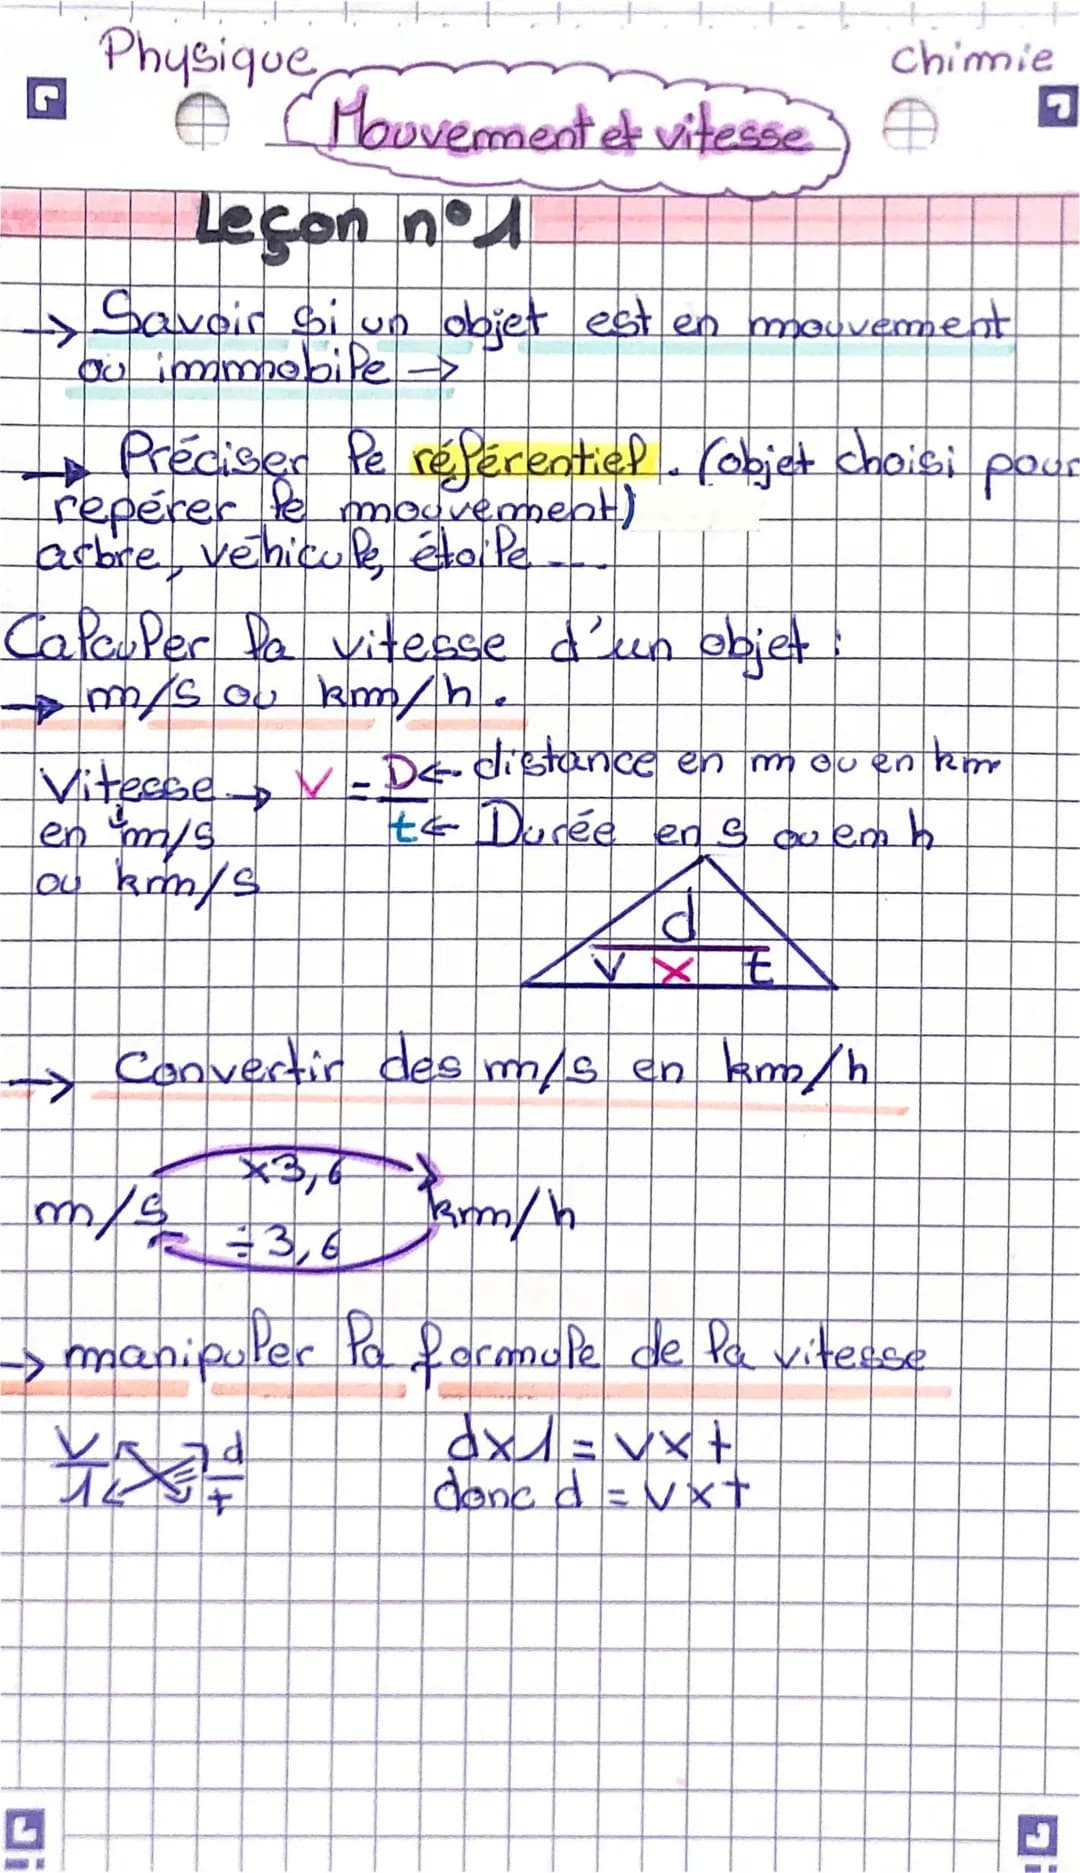 Physique
Chimie
Mouvement et vitesse
Leçon n°1
→ Savoir si un objet est en mouvement
ou immobile →
→ Préciser le référentiel. (objet choisi pour
repérer le mouvement)
arbre, véhicule, étoile ...
Calculer la vitesse d'un objet :
→ m/s ou km/h.
Vitesse → V = D ← distance en m ou en km
en m/s t ← Durée en s ou em h
ou km/s
d
v x t
→ Convertir des m/s en km/h
x3,6
m/s km/h
÷3,6
→ manipuler la formule de la vitesse
V d dx1 = vxt
1 t donc d = vxt